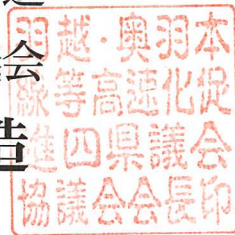 会
羽越・奥羽本
線等高速化促
進四県議会
協議会会長印